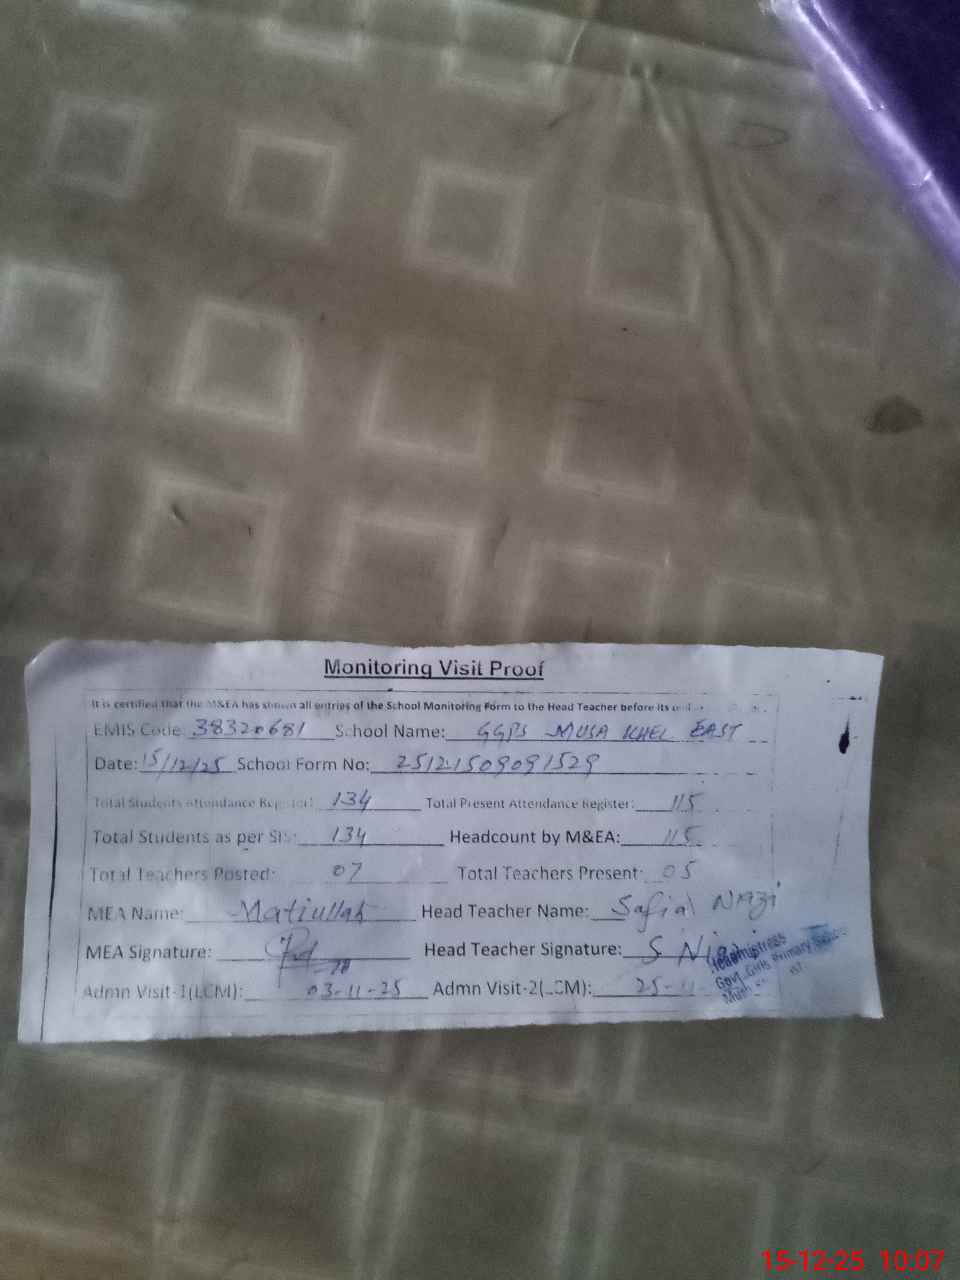 Monitoring Visit Proof
It is certified that the M&EA has shown all entries of the School Monitoring Form to the Head Teacher before its
EMIS Code: 38320681 School Name: GGPS MUSA KHEL EAST
Date: 15/12/25 School Form No: 25121509091529
Total Students Attendance Register: 134 Total Present Attendance Register: 115
Total Students as per SIS: 134 Headcount by M&EA: 115
Total Teachers Posted: 07 Total Teachers Present: 05
MEA Name: Matiullah Head Teacher Name: Safia Niazi
MEA Signature: Head Teacher Signature: S Niazi
Admn Visit-1(LCM): 03-11-25 Admn Visit-2(LCM): 25-11-
Headmistress
Govt. Girls Primary School
15-12-25 10:07